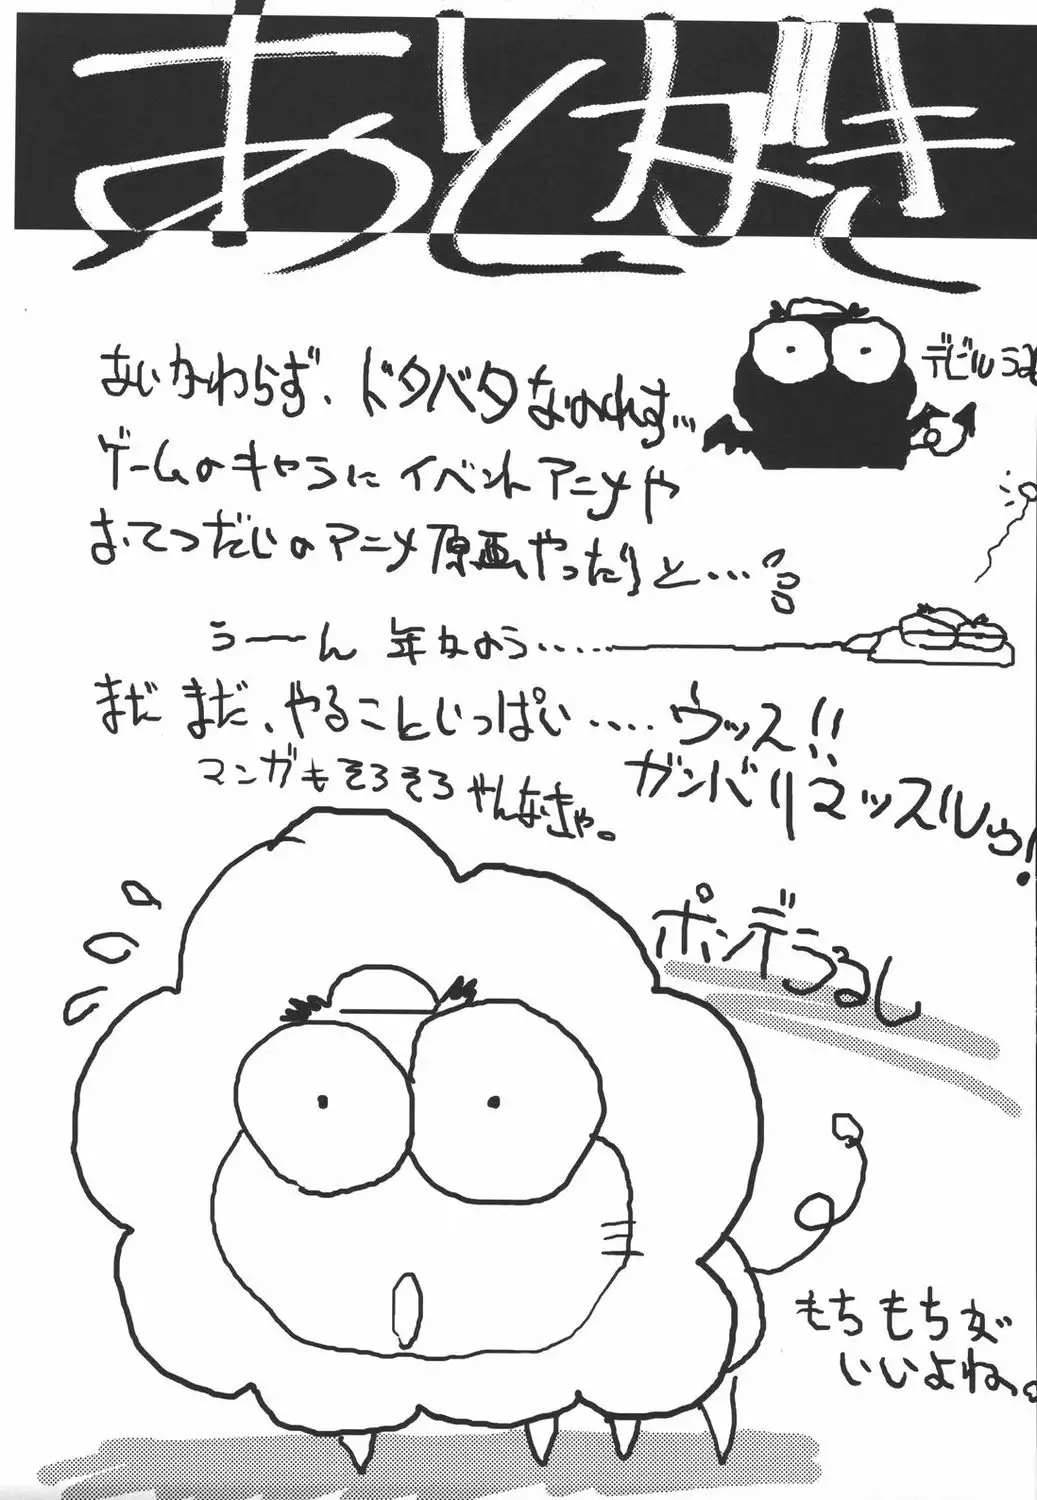 あとがき
あいかわらず、ドタバタなのれす…
デビルうる
ゲームのキャラにイベントアニメや
おてつだいのアニメ原画やったりと…
うーん 年なのう……
まだまだ、やることいっぱい……
ウッス!!
マンガもそろそろやんなきゃ。
ガンバリマッスルゥ!
ポンデうるし
もちもちが
いいよね。